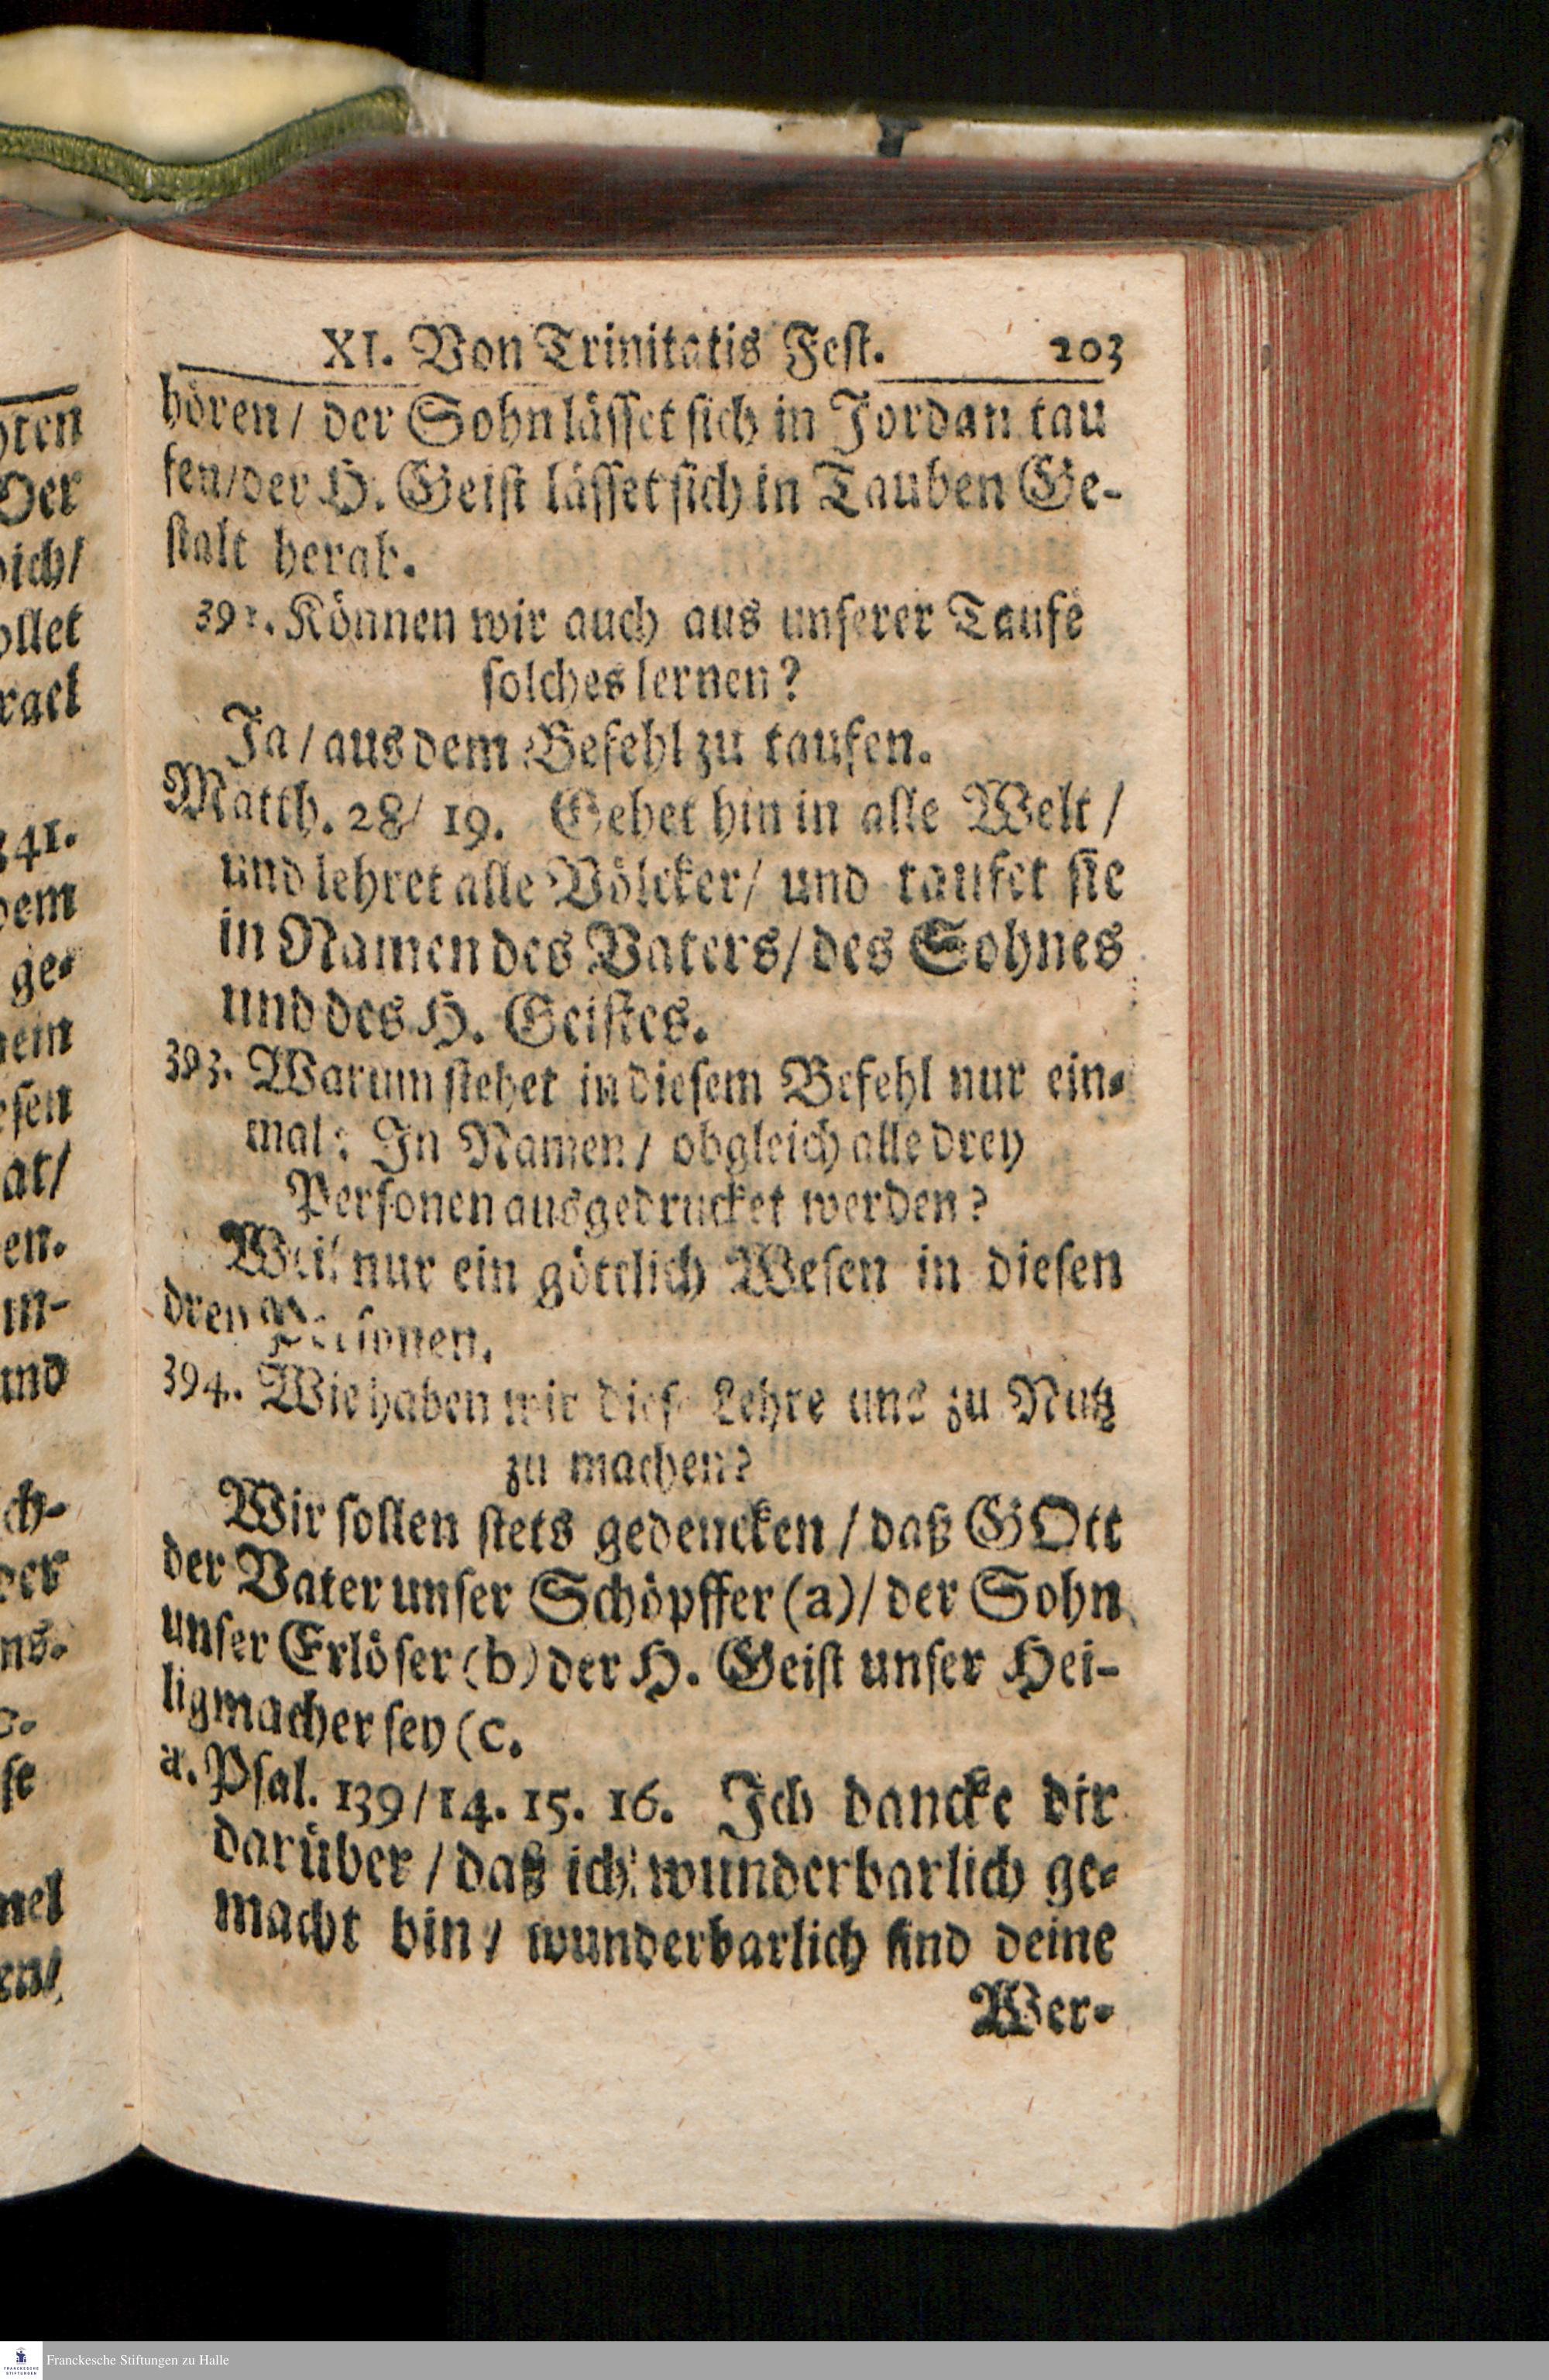 XI. Von Trinitatis Fest. 203
hören / der Sohn lässet sich in Jordan tau
fen/ der H. Geist lässet sich in Tauben Ge-
stalt herab.
392. Können wir auch aus unserer Taufe
solches lernen?
Ja / aus dem Befehl zu taufen.
Matth. 28/ 19. Gehet hin in alle Welt /
und lehret alle Völcker/ und taufet sie
in Namen des Vaters/ des Sohnes
und des H. Geistes.
393. Warum stehet in diesem Befehl nur ein-
mal: In Namen / obgleich alle drey
Personen ausgedrucket werden?
Weil nur ein göttlich Wesen in diesen
drey Personen.
394. Wie haben wir diese Lehre uns zu Nutz
zu machen?
Wir sollen stets gedencken / daß GOtt
der Vater unser Schöpffer (a)/ der Sohn
unser Erlöser (b) der H. Geist unser Hei-
ligmacher sey (c.
a. Psal. 139 / 14. 15. 16. Ich dancke dir
darüber / daß ich wunderbarlich ge-
macht bin / wunderbarlich sind deine
Wer-
Franckesche Stiftungen zu Halle